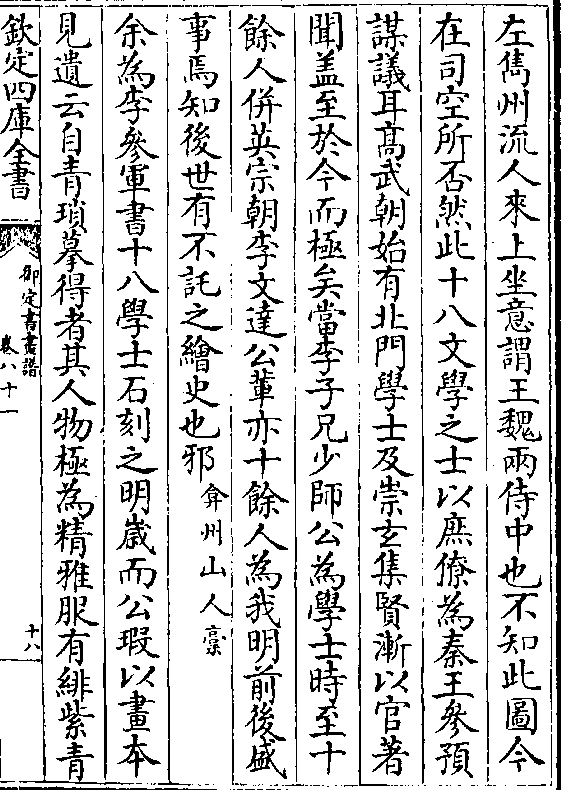 左雋州流人來上坐意謂王魏兩侍中也不知此圖今
在司空所否然此十八文學之士以庶僚為秦王參預
謀議耳髙武朝始有北門學士及崇𤣥集賢漸以官著
聞盖至於今而極矣當李子兄少師公為學士時至十
餘人併英宗朝李文達公輩亦十餘人為我明前後盛
事焉知後世有不託之繪史也邪 弇州山人藁
余為李參軍書十八學士石刻之明嵗而公瑕以畫本
見遺云自青瑣摹得者其人物極為精雅服有緋紫青
欽定四庫全書
御定書畫譜
卷八十一
十八